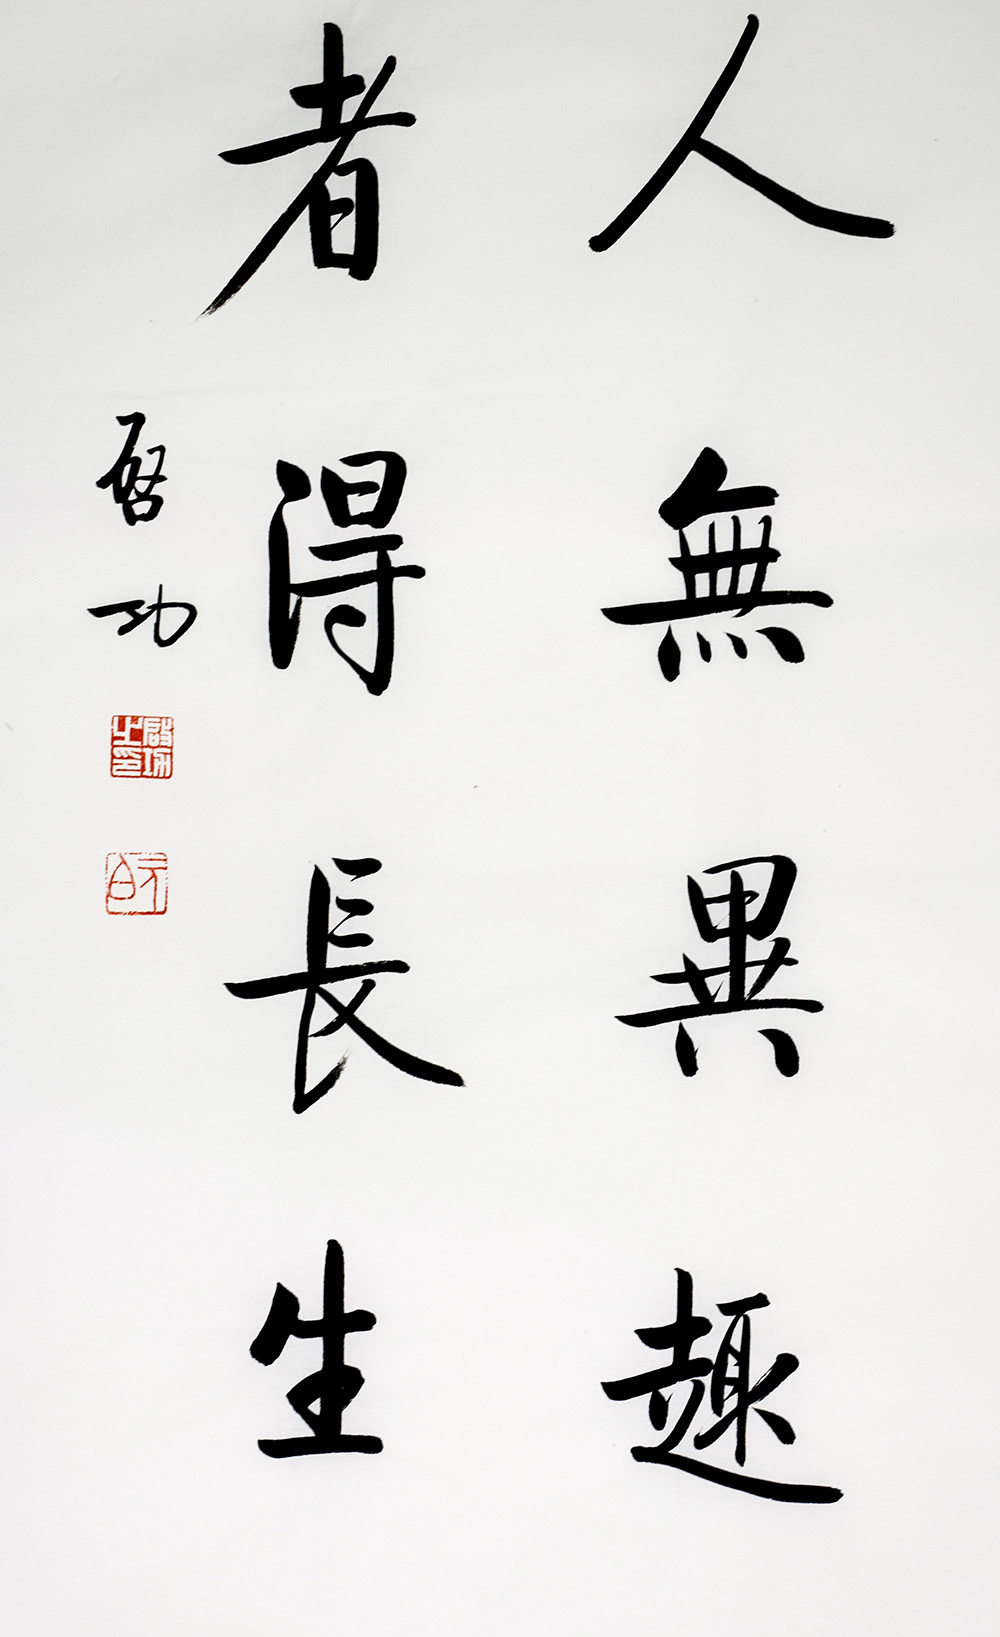 人無異趣
者得長生
啓功
啟功之印
元白